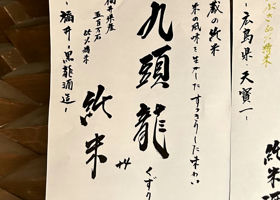 純米酒
精米
-広島県 天寶一-
蔵の純米
米の風味を生かしたすっきりした味わい
九頭龍
くずり
純米
福井県産
五百万石
-福井・黒龍酒造-